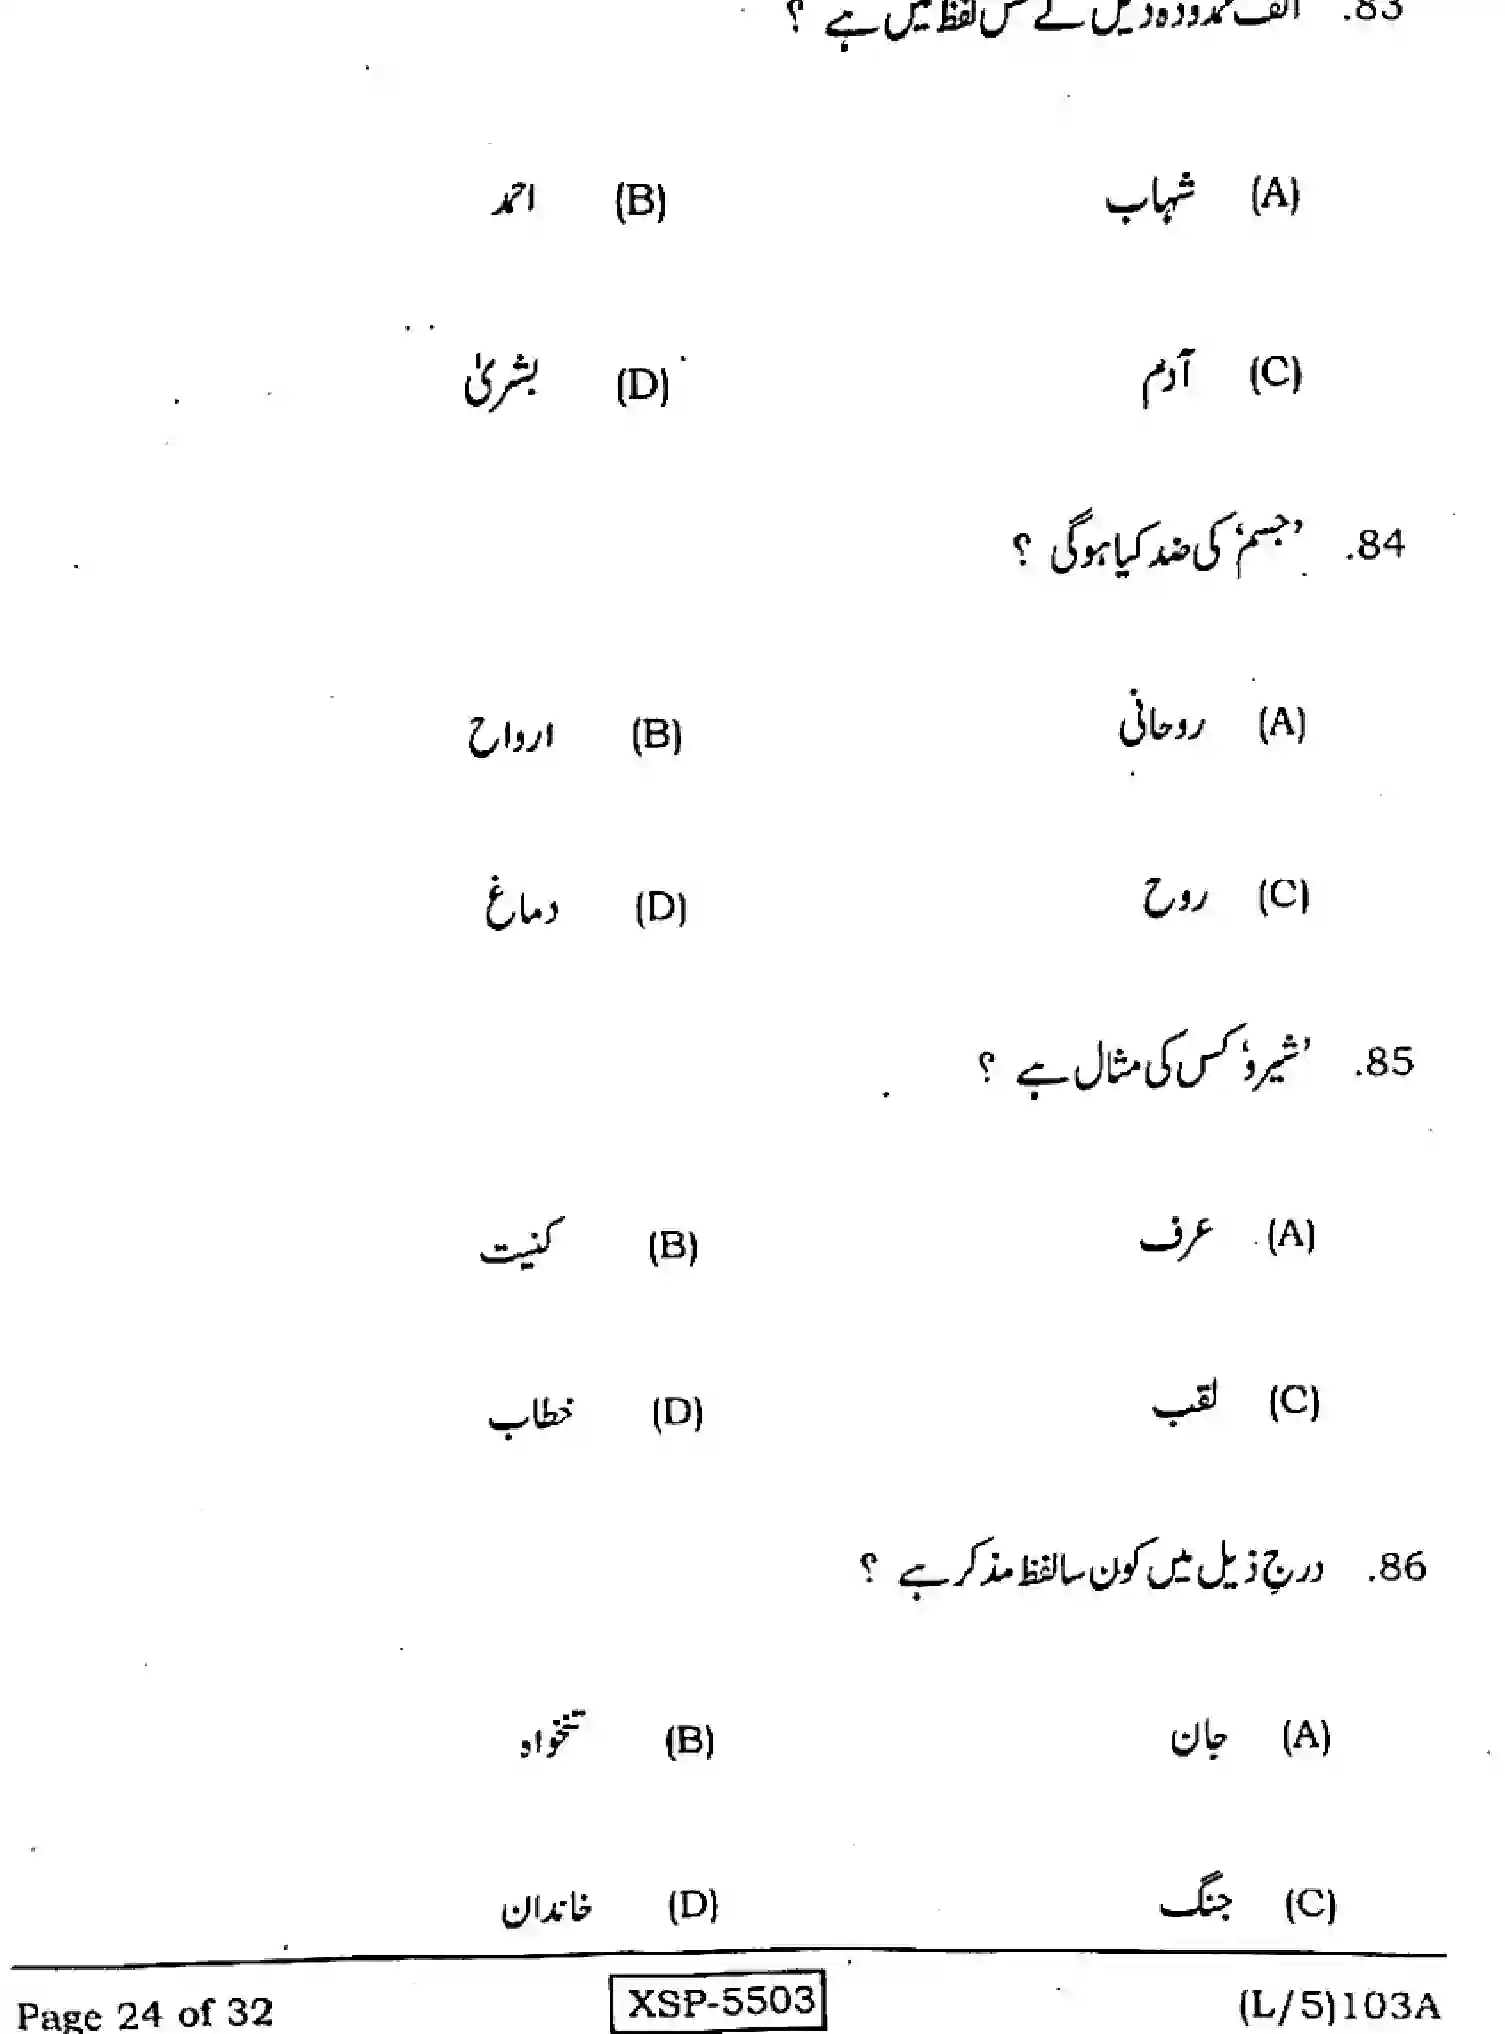 83. الف ممدودہ ذیل کے کس لفظ میں ہے ؟
(A) شہاب (B) احمد
(C) آدم (D) بشریٰ
84. ’جسم‘ کی ضد کیا ہوگی ؟
(A) روحانی (B) ارواح
(C) روح (D) دماغ
85. ’شیرو‘ کس کی مثال ہے ؟
(A) عرف (B) کنیت
(C) لقب (D) خطاب
86. درج ذیل میں کون سا لفظ مذکر ہے ؟
(A) جان (B) تنخواہ
(C) جنگ (D) خاندان
Page 24 of 32 XSP-5503 (L/5)103A